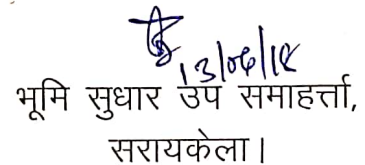 13/06/18
भूमि सुधार उप समाहर्त्ता,
सरायकेला।